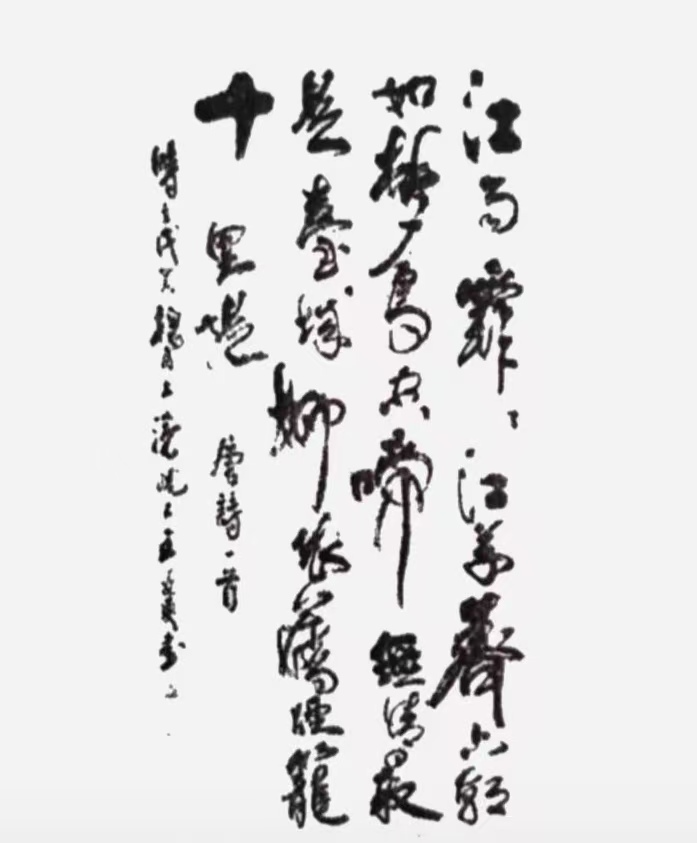 江雨霏〻江草齊六朝
如夢鳥空啼無情最
是臺城柳依舊煙籠
十里堤 唐詩一首
時 月上澣 書